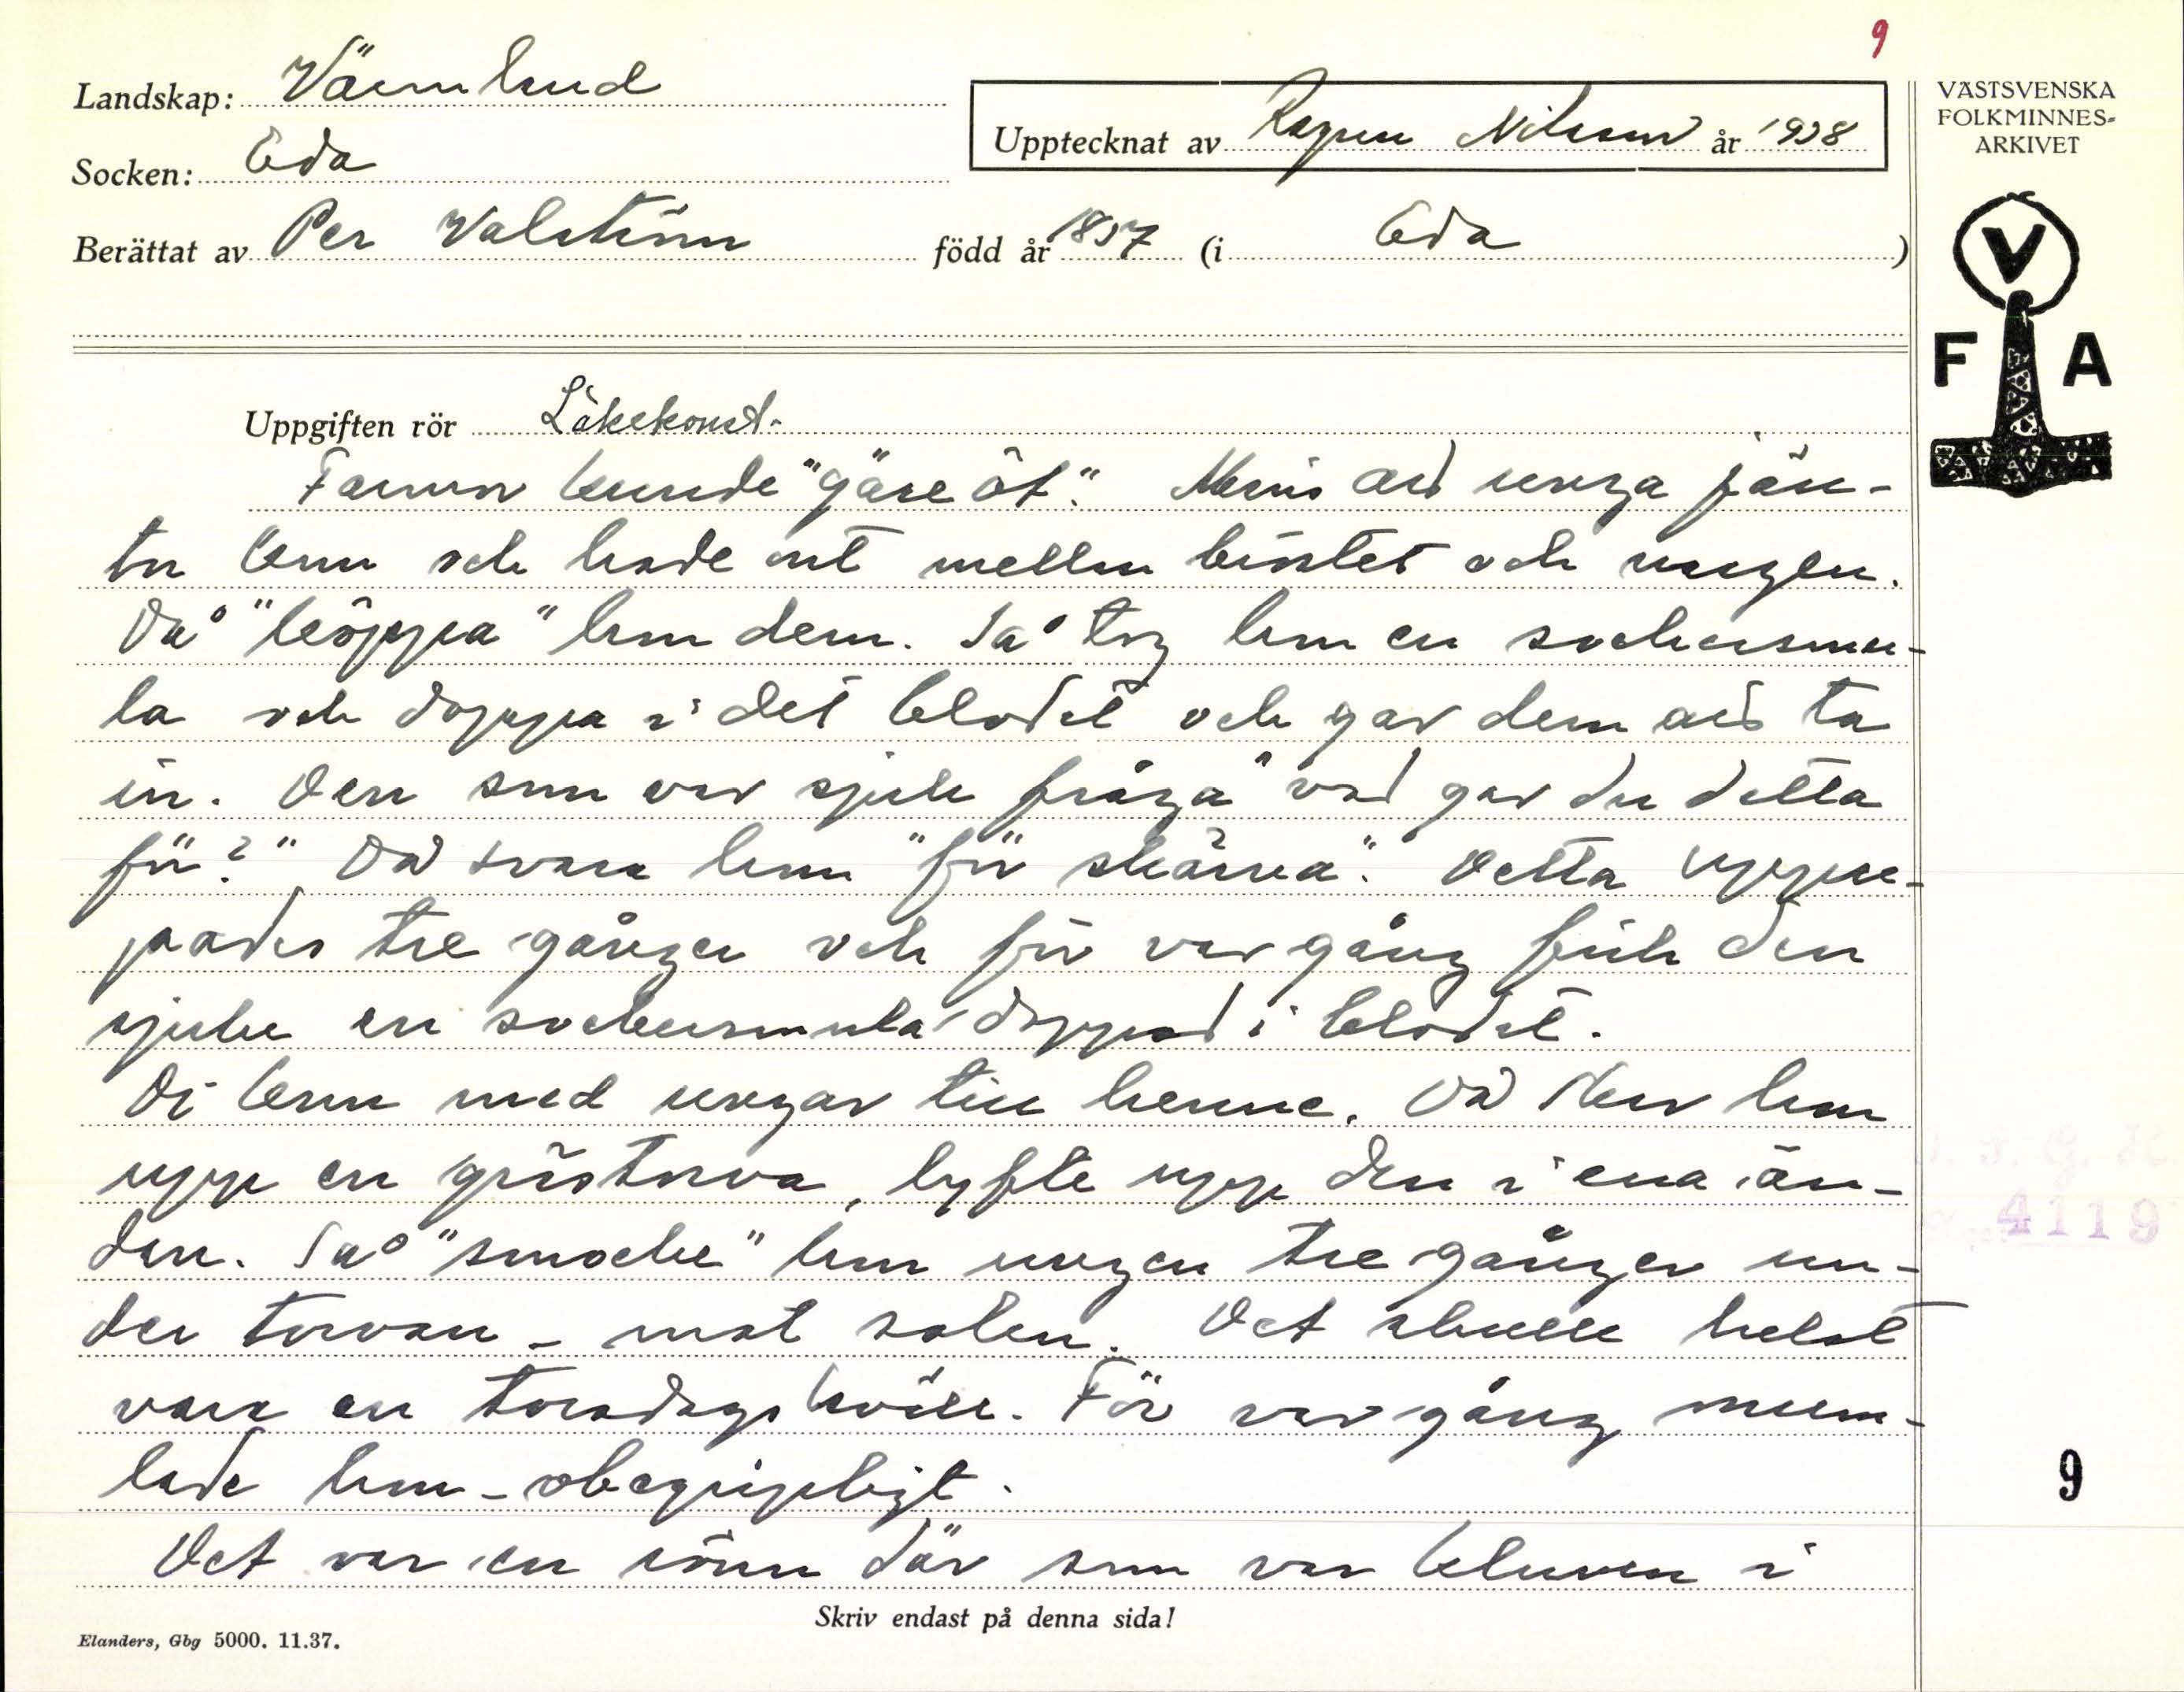 9
Landskap: Värmland
Socken: Eda
Upptecknat av Ragnar Nilsson år 1938
Berättat av Per Valström född år 1857 (i Eda)
VÄSTSVENSKA
FOLKMINNES-
ARKIVET
V
F A
Uppgiften rör Läkekonst.
Farmor kunde "göre åt". Minns att unga jän-
ter kom och hade ont mellan bröstet och magen.
Då "köppa" hon dem. Så tog hon en sockersmu-
la och doppa i det blodet och gav dem att ta
in. Den som var sjuk fråga "vad gav du detta
för?" Då svara hon "för skärva". Detta uppre-
pades tre gånger och för var gång fick den
sjuke en sockersmula doppad i blodet.
Di kom med ungar till henne. Då skar hon
upp en grästorva, lyfte upp den i ena än-
den. Så "smocke" hon ungen tre gånger un-
der torvan - mot solen. Det skulle helst
vara en torsdagskväll. För var gång mum-
lade hon - obegripligt.
Det var en rönn där som var kluven i
4119
9
Skriv endast på denna sida!
Elanders, Gbg 5000. 11.37.